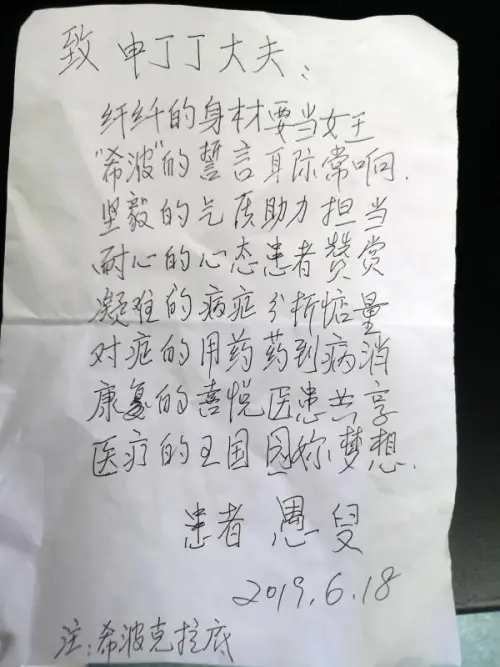 致 申丁丁大夫：
纤纤的身材要当女王
"希波"的誓言耳际常响.
坚毅的气质助力担当
耐心的心态患者赞赏
凝难的病症分析惦量
对症的用药药到病消
康复的喜悦医患共享
医疗的王国圆妳梦想.
患者 愚叟
2019.6.18
注:希波克拉底